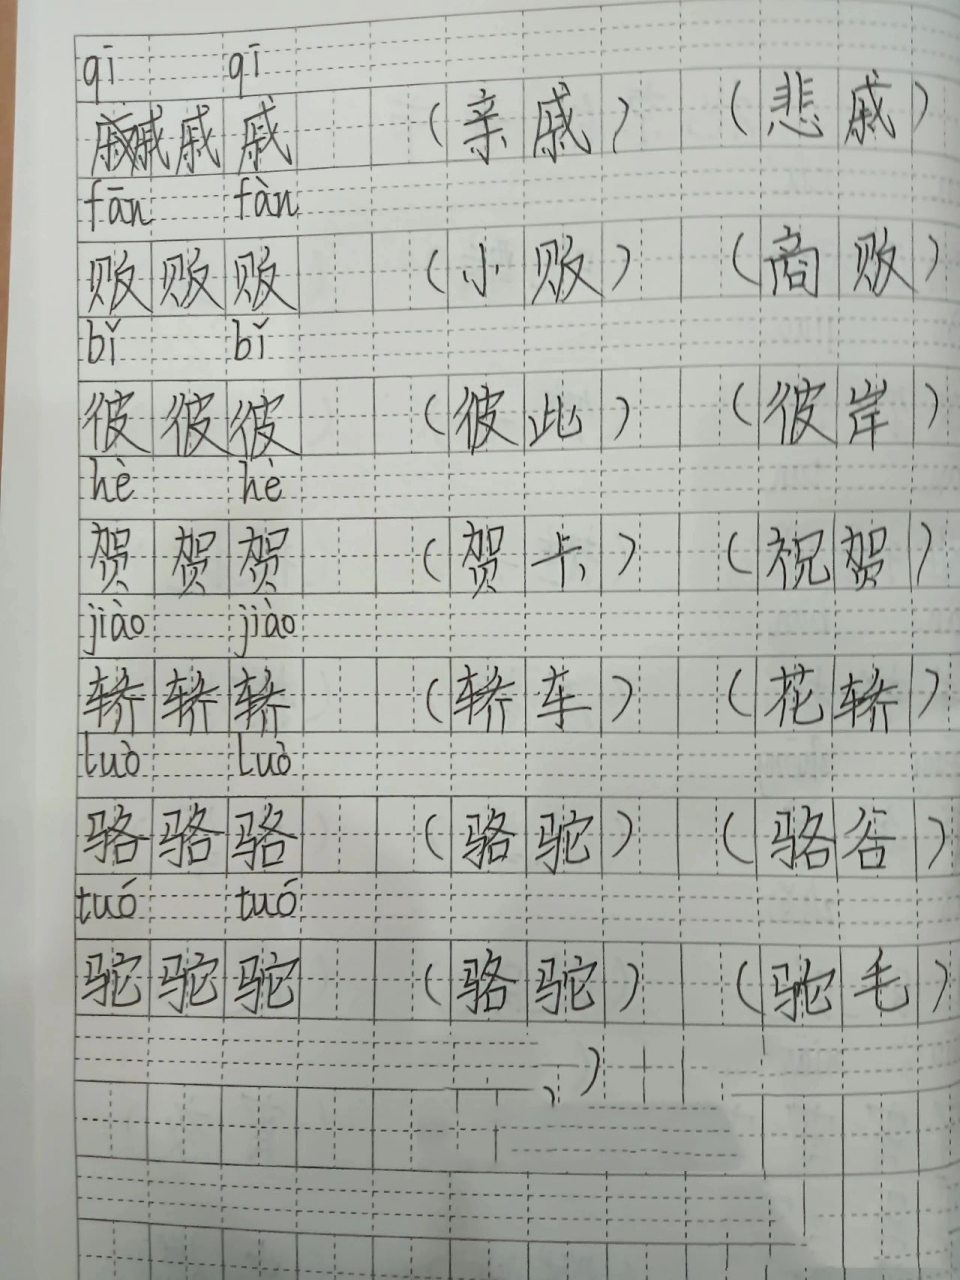 qī qī
戚戚戚 戚 (亲戚) (悲戚)
fān fàn
贩贩贩 (小贩) (商贩)
bǐ bǐ
彼彼彼 (彼此) (彼岸)
hè hè
贺贺贺 (贺卡) (祝贺)
jiào jiào
轿轿轿 (轿车) (花轿)
luò luò
骆骆骆 (骆驼) (骆谷)
tuó tuó
驼驼驼 (骆驼) (驼毛)